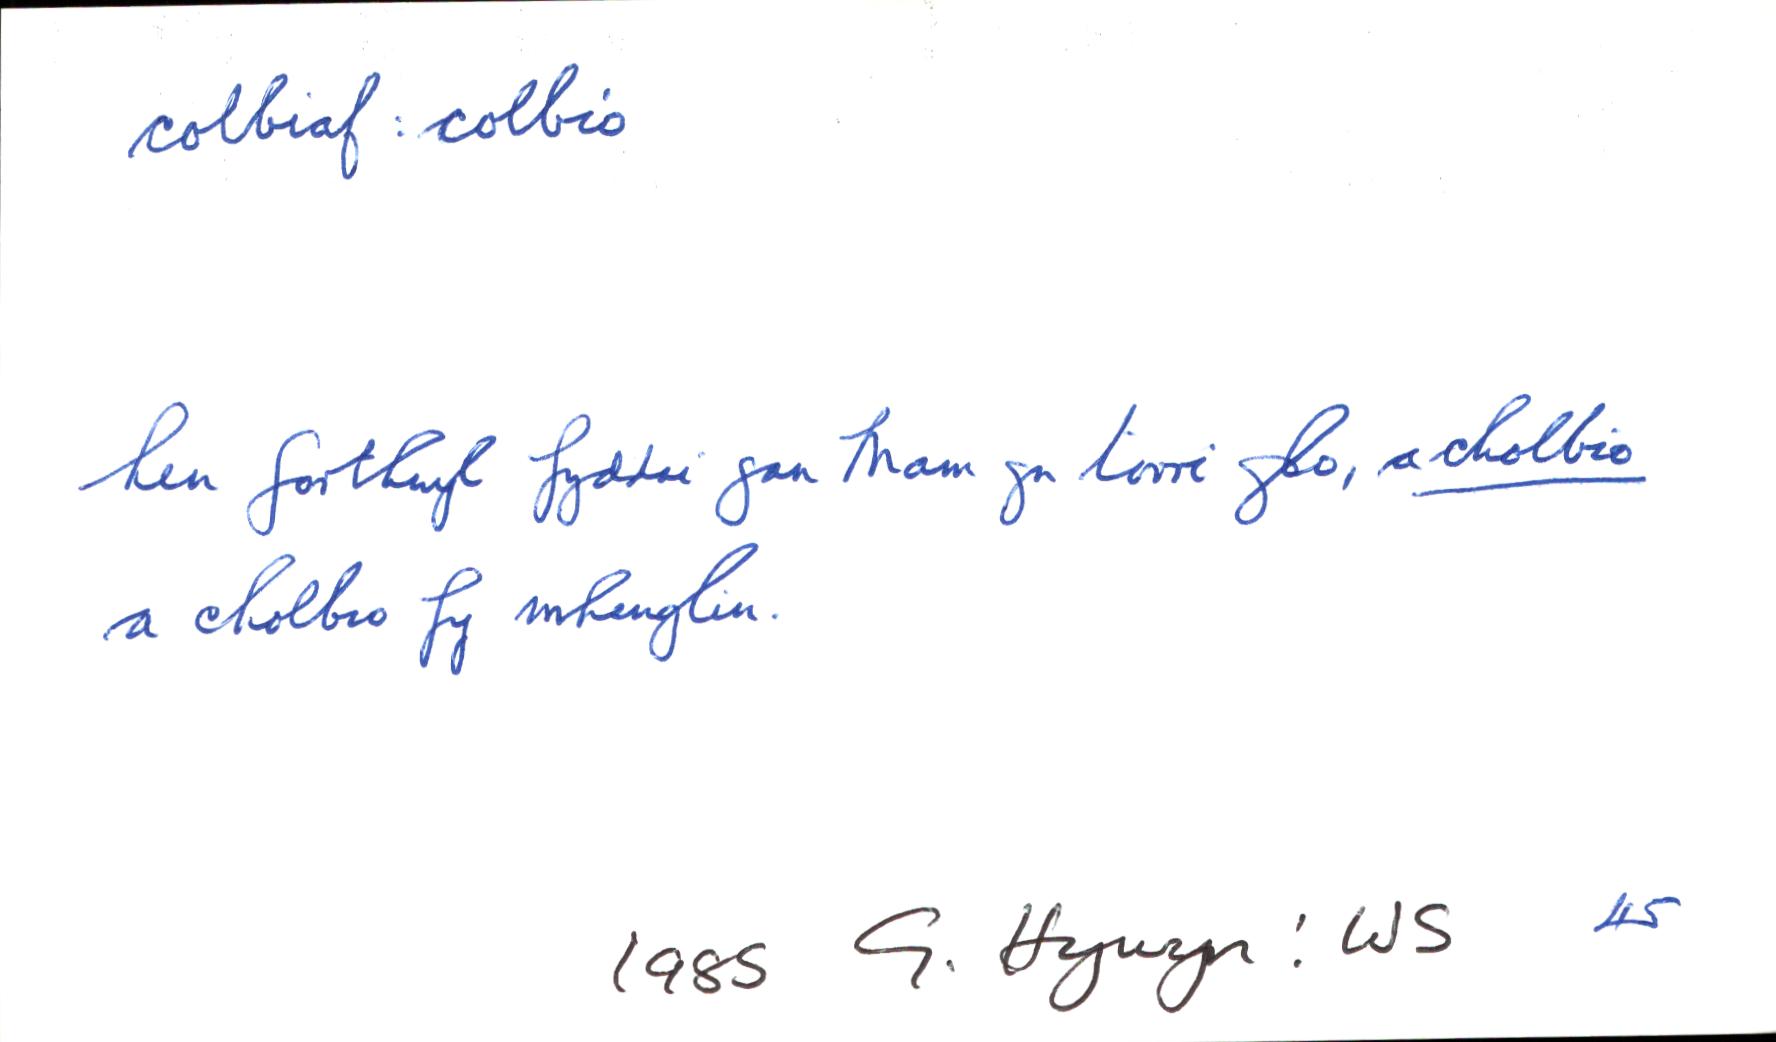 colbiaf : colbio
hen forthwyl fyddai gan Mam yn torri glo, a cholbio
a cholbio fy mhenglin.
1985 G. Hywyn: WS 45